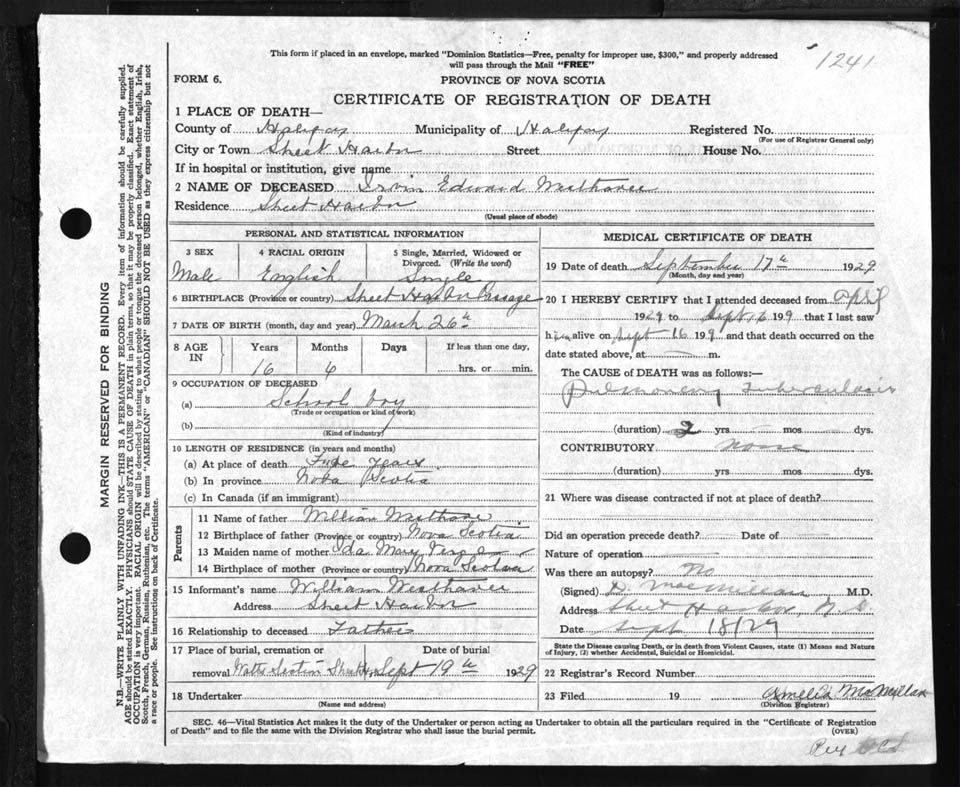 This form if placed in an envelope, marked "Dominion Statistics—Free, penalty for improper use, $300," and properly addressed
will pass through the Mail "FREE"
1241
FORM 6.
PROVINCE OF NOVA SCOTIA
CERTIFICATE OF REGISTRATION OF DEATH
1 PLACE OF DEATH—
County of Halifax Municipality of Halifax Registered No.
(For use of Registrar General only)
City or Town Sheet Harbor Street House No.
If in hospital or institution, give name
2 NAME OF DECEASED Irvin Edward Westhaver
Residence Sheet Harbor
(Usual place of abode)
PERSONAL AND STATISTICAL INFORMATION
3 SEX 4 RACIAL ORIGIN 5 Single, Married, Widowed or
Divorced. (Write the word)
Male English Single
6 BIRTHPLACE (Province or country) Sheet Harbor Passage
7 DATE OF BIRTH (month, day and year) March 26th
8 AGE IN Years Months Days If less than one day,
16 6 hrs. or min.
9 OCCUPATION OF DECEASED
(a) School boy
(Trade or occupation or kind of work)
(b)
(Kind of industry)
10 LENGTH OF RESIDENCE (in years and months)
(a) At place of death years
(b) In province Nova Scotia
(c) In Canada (if an immigrant)
Parents
11 Name of father William Westhaver
12 Birthplace of father (Province or country) Nova Scotia
13 Maiden name of mother Ida Mary
14 Birthplace of mother (Province or country) Nova Scotia
15 Informant's name William Westhaver
Address Sheet Harbor
16 Relationship to deceased Father
17 Place of burial, cremation or Date of burial
removal Watts Section Sheet Hbr Sept 19th 1929
18 Undertaker
(Name and address)
MEDICAL CERTIFICATE OF DEATH
19 Date of death September 17th 1929
(Month, day and year)
20 I HEREBY CERTIFY that I attended deceased from April
1929 to Sept 16 199 that I last saw
him alive on Sept 16 199 and that death occurred on the
date stated above, at m.
The CAUSE OF DEATH was as follows:—
Pulmonary Tuberculosis
(duration) 2 yrs mos. dys.
CONTRIBUTORY None
(duration) yrs mos dys.
21 Where was disease contracted if not at place of death?
Did an operation precede death? Date of
Nature of operation
Was there an autopsy? No
(Signed) D. MacMillan M.D.
Address Sheet Harbor N.S.
Date Sept 18/29
State the Disease causing Death, or in death from Violent Causes, state (1) Means and Nature
of Injury, (2) whether Accidental, Suicidal or Homicidal.
22 Registrar's Record Number
23 Filed 19 Amelia MacMillan
(Division Registrar)
SEC. 46—Vital Statistics Act makes it the duty of the Undertaker or person acting as Undertaker to obtain all the particulars required in the "Certificate of Registration
of Death" and to file the same with the Division Registrar who shall issue the burial permit.
(OVER)
MARGIN RESERVED FOR BINDING
N.B.—WRITE PLAINLY WITH UNFADING INK—THIS IS A PERMANENT RECORD. Every item of information should be carefully supplied.
AGE should be stated EXACTLY. PHYSICIANS should STATE CAUSE OF DEATH in plain terms, so that it may be properly classified. Exact statement of
OCCUPATION is very important. RACIAL ORIGIN will be described by stating to what people or tongue the deceased person belonged, whether English, Irish,
Scotch, French, German, Russian, Ruthenian, etc. The terms "AMERICAN" or "CANADIAN" SHOULD NOT BE USED as they express citizenship but not
a race or people. See instructions on back of Certificate.